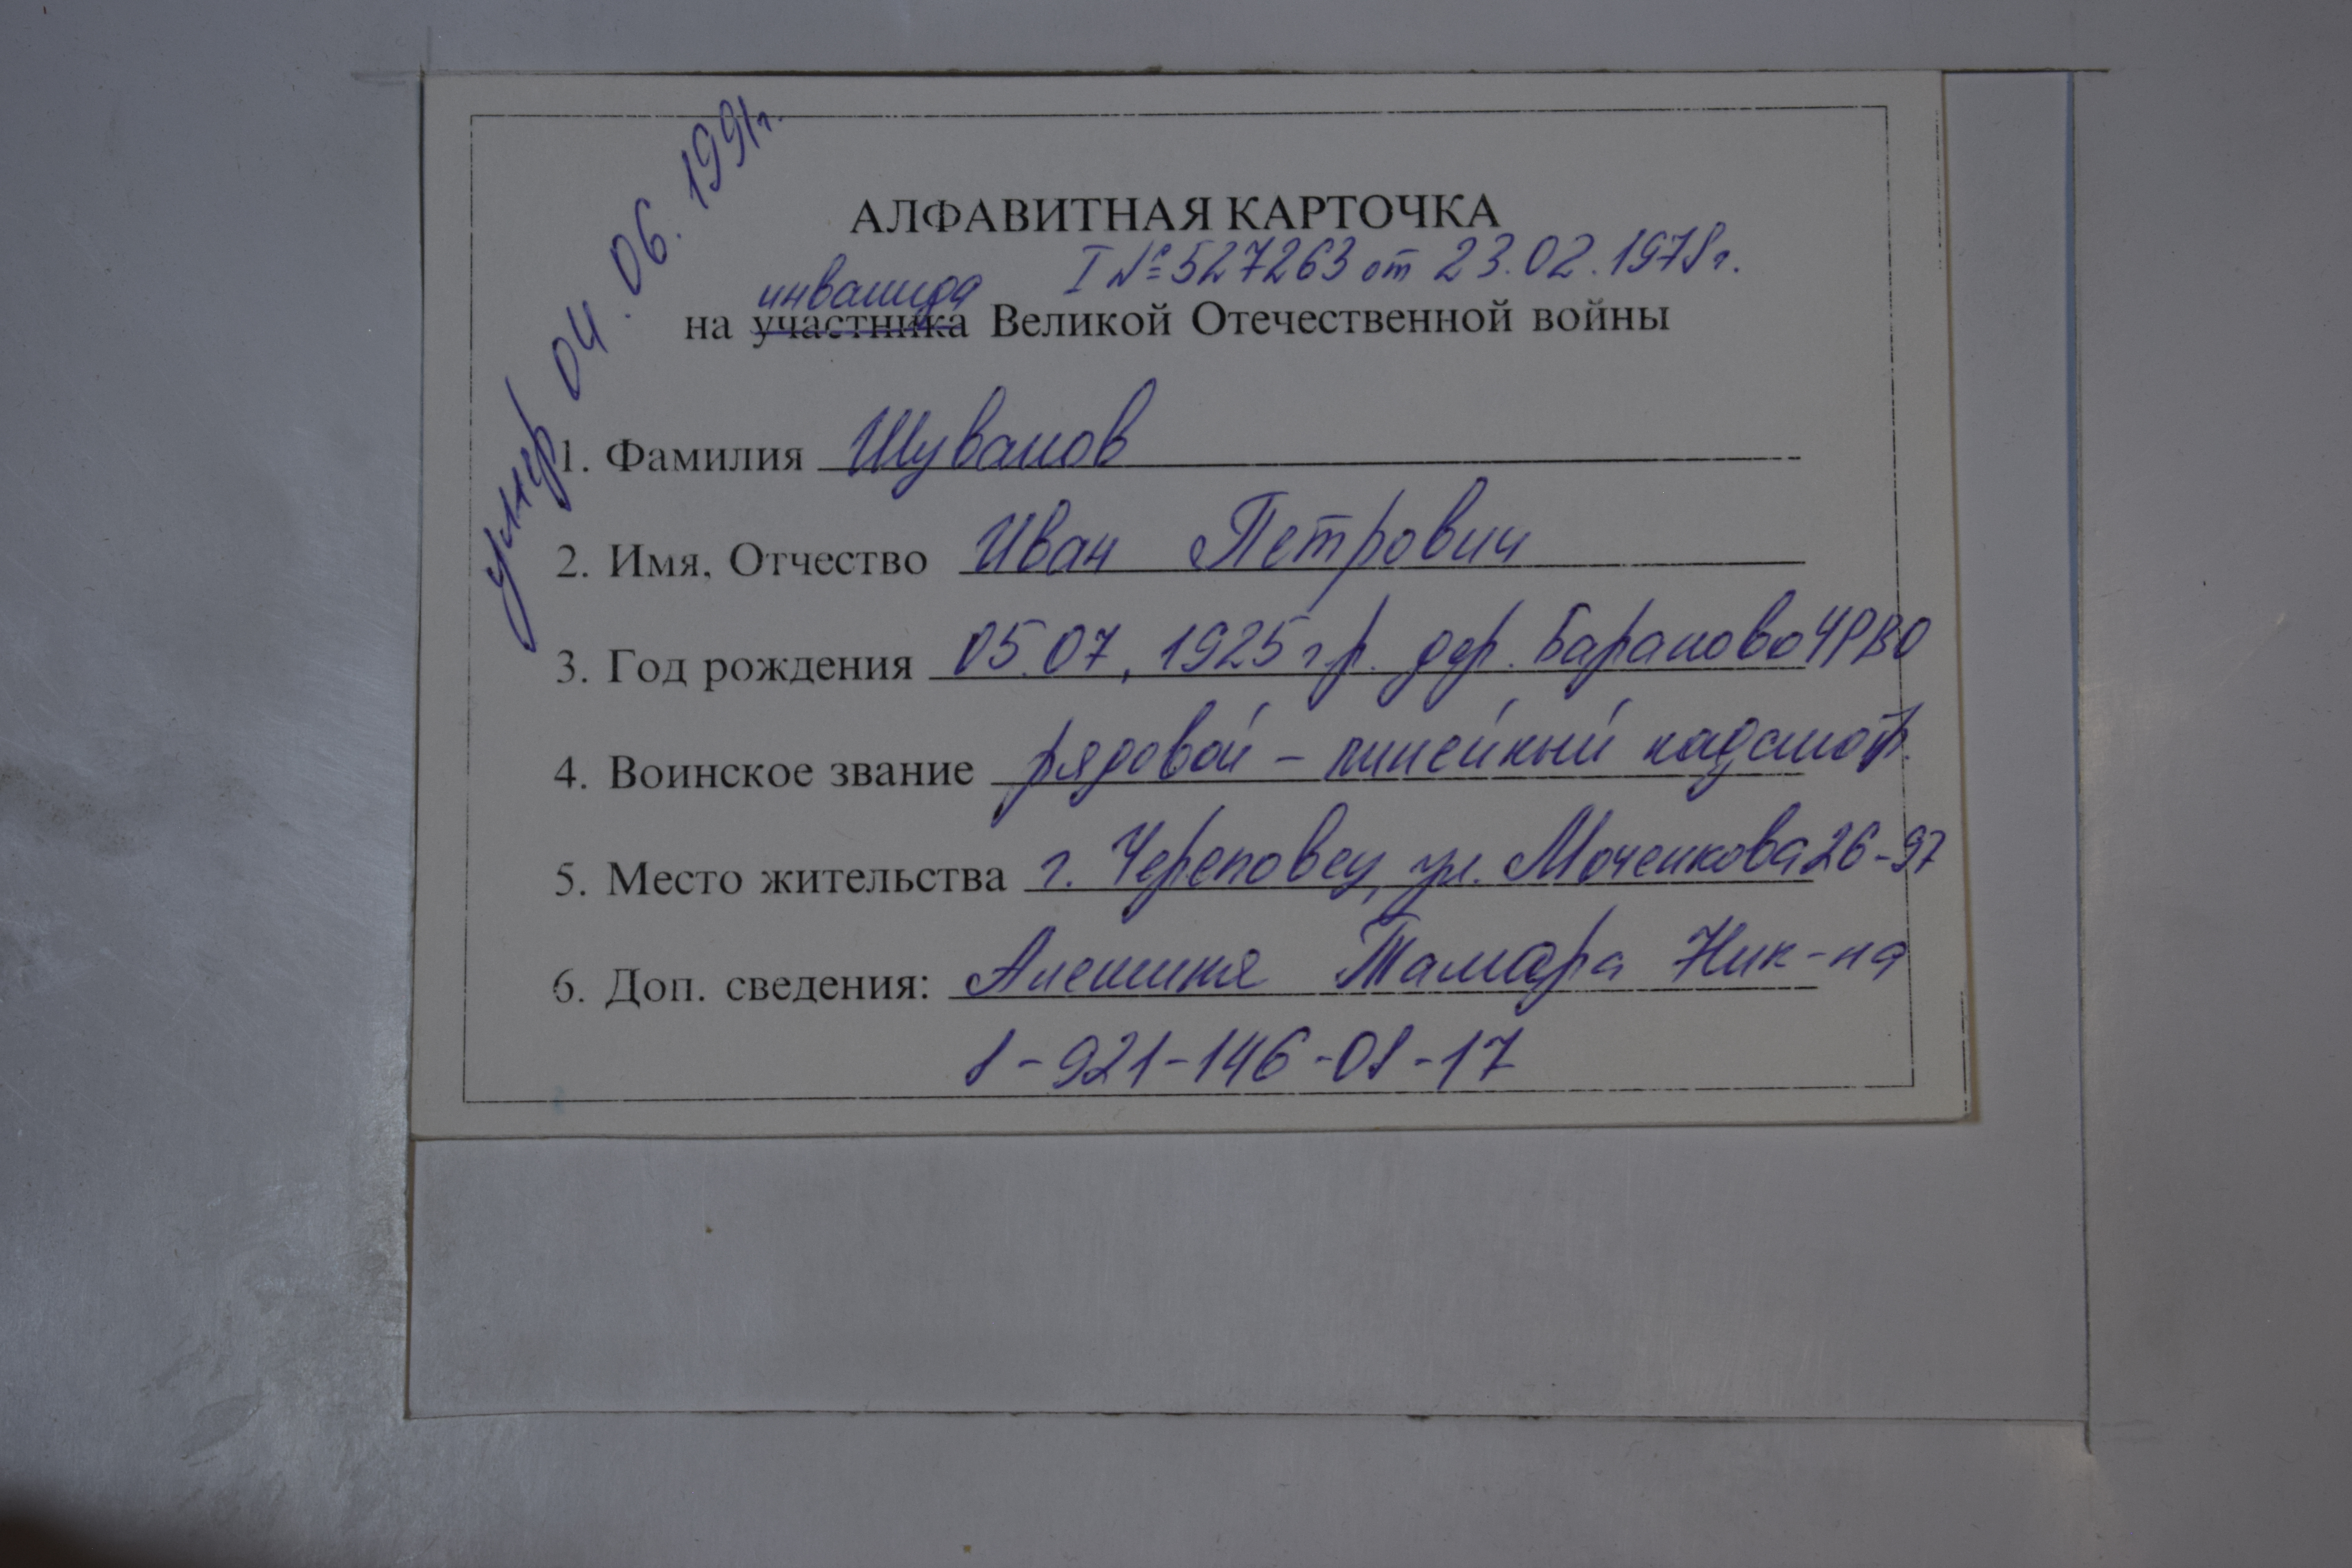 умер 04.06.1991г.
АЛФАВИТНАЯ КАРТОЧКА
I № 527263 от 23.02.1978г.
инвалида
на участника Великой Отечественной войны
1. Фамилия Шувалов
2. Имя, Отчество Иван Петрович
3. Год рождения 05.07.1925 г.р. дер. Бараново ЧРВО
4. Воинское звание рядовой - линейный надсмотр.
5. Место жительства г. Череповец, ул. Моченкова 26-97
6. Доп. сведения: Тамара Ник-на
8-921-146-08-17